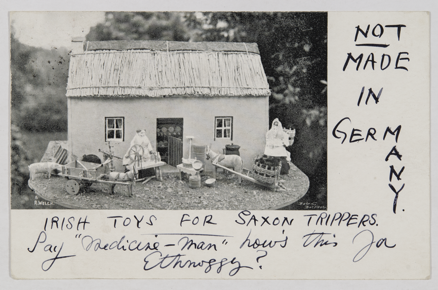 NOT
MADE
IN
GERMANY.
R. WELCH
IRISH TOYS FOR SAXON TRIPPERS.
Say "Medicine-man" how's this for
Ethnoggy?